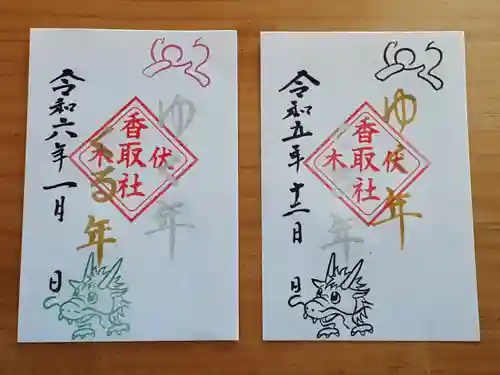 令和六年一月 日
くる年
ゆく年
香取社
伏木
令和五年十二月 日
ゆく年
くる年
香取社
伏木